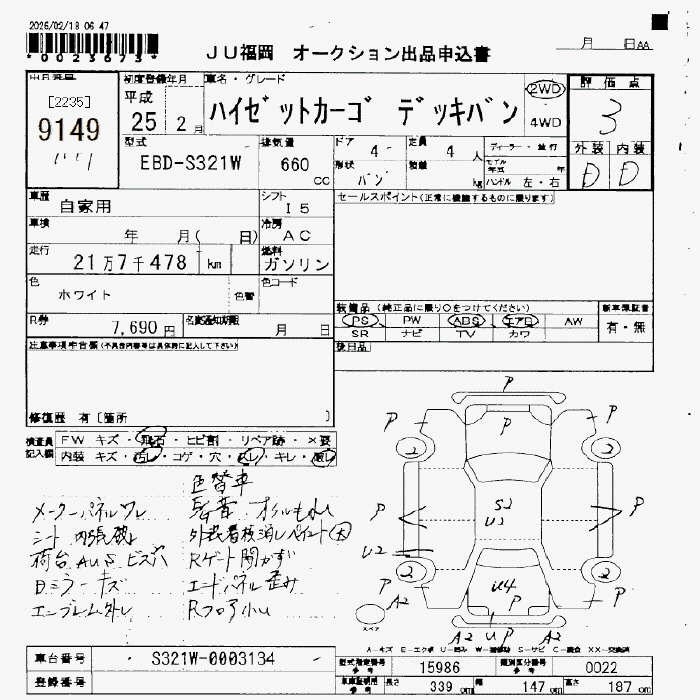 2026/02/18 06 47
*0023673*
JU福岡 オークション出品申込書
月 日AA
出品番号
[2235]
9149
初度登録年月
平成
25 2月
車名・グレード
ハイゼットカーゴ デッキバン
2WD
4WD
評価点
3
外装 内装
D D
型式
EBD-S321W
排気量
660
cc
ドア
4
形状
バン
定員
4
人
積載
kg
ディーラー・並行
モデル年式 年
ハンドル 左・右
車歴
自家用
シフト
I5
セールスポイント(正常に機能するものに限ります)
車検
年 月( 日)
冷房
AC
走行
21万7千478 km
燃料
ガソリン
色
ホワイト
色替
色コード
R券
7,690円
名変通知期限
月 日
装備品 (純正品に限り○をつけてください)
PS PW ABS エアB AW
SR ナビ TV カワ
新車保証書
有・無
後日品
注意事項申告欄(不具合内容等は具体的に記入して下さい)
修復歴 有〔箇所 〕
検査員記入欄
FW キズ・飛石・ヒビ割・リペア跡・×要
内装 キズ・汚レ・コゲ・穴・ヌレ・キレ・
色替車
メーターパネルワレ
シート 内張破レ
外装看板消しペイント(大)
荷台AUSビス穴
Rゲート開かず
Dミラーキズ
エンドパネル歪み
エンブレム外レ
Rフロア小U
P
P
P
P
2
2
P
P
S2
U2
U2
2
2
U4
P
P
P
A2
スペア
A2
U
P
A2
A-キズ E-エクボ U-凹み W-補修跡 S-サビ C-腐食 XX-交換済
車台番号
S321W-0003134
登録番号
型式指定番号 参考
15986
類別区分番号 参考
0022
車庫証明用 参考
長さ
339 cm
幅
147 cm
高さ
187 cm